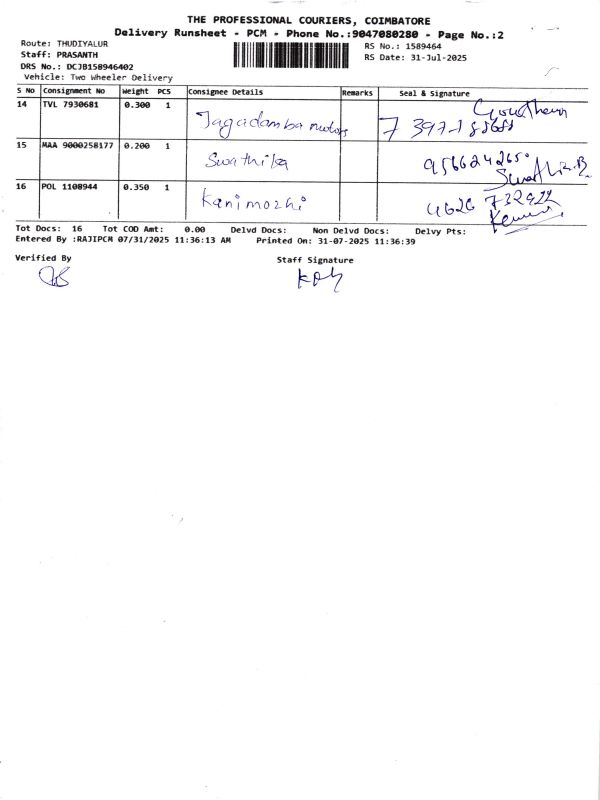 THE PROFESSIONAL COURIERS, COIMBATORE
Delivery Runsheet - PCM - Phone No.:9047080280 - Page No.:2
Route: THUDIYALUR
Staff: PRASANTH
DRS No.: DCJB158946402
Vehicle: Two Wheeler Delivery
RS No.: 1589464
RS Date: 31-Jul-2025
S No Consignment No Weight PCS Consignee Details Remarks Seal & Signature
14 TVL 7930681 0.300 1 Jagadamba motors
15 MAA 9000258177 0.200 1 Swathika 9566242650
16 POL 1108944 0.350 1 Kanimozhi
Tot Docs: 16 Tot COD Amt: 0.00 Delvd Docs: Non Delvd Docs: Delvy Pts:
Entered By :RAJIPCM 07/31/2025 11:36:13 AM Printed On: 31-07-2025 11:36:39
Verified By Staff Signature